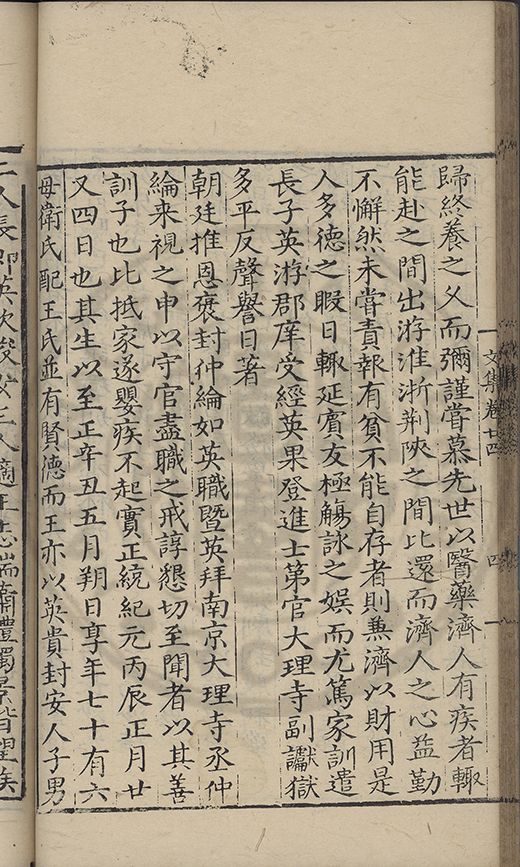 歸終養之父而彌謹嘗慕先世以醫藥濟人有疾者輙
能赴之間出游淮浙荆陜之間比還而濟人之心益勤
不懈然未嘗責報有貧不能自存者則兼濟以財用是
人多德之暇日輙延賓友極觴詠之娱而尤篤家訓遣
長子英游郡庠受經英果登進士第官大理寺副讞獄
多平反聲譽日著
朝廷推恩褒封仲綸如英職暨英拜南京大理寺丞仲
綸来視之申以守官盡職之戒諄懇切至聞者以其善
訓子也比抵家遂嬰疾不起實正統紀元丙辰正月廿
又四日也其生以至正辛丑五月朔日享年七十有六
母衛氏配王氏並有賢德而王亦以英貴封安人子男
文集卷廿四
四